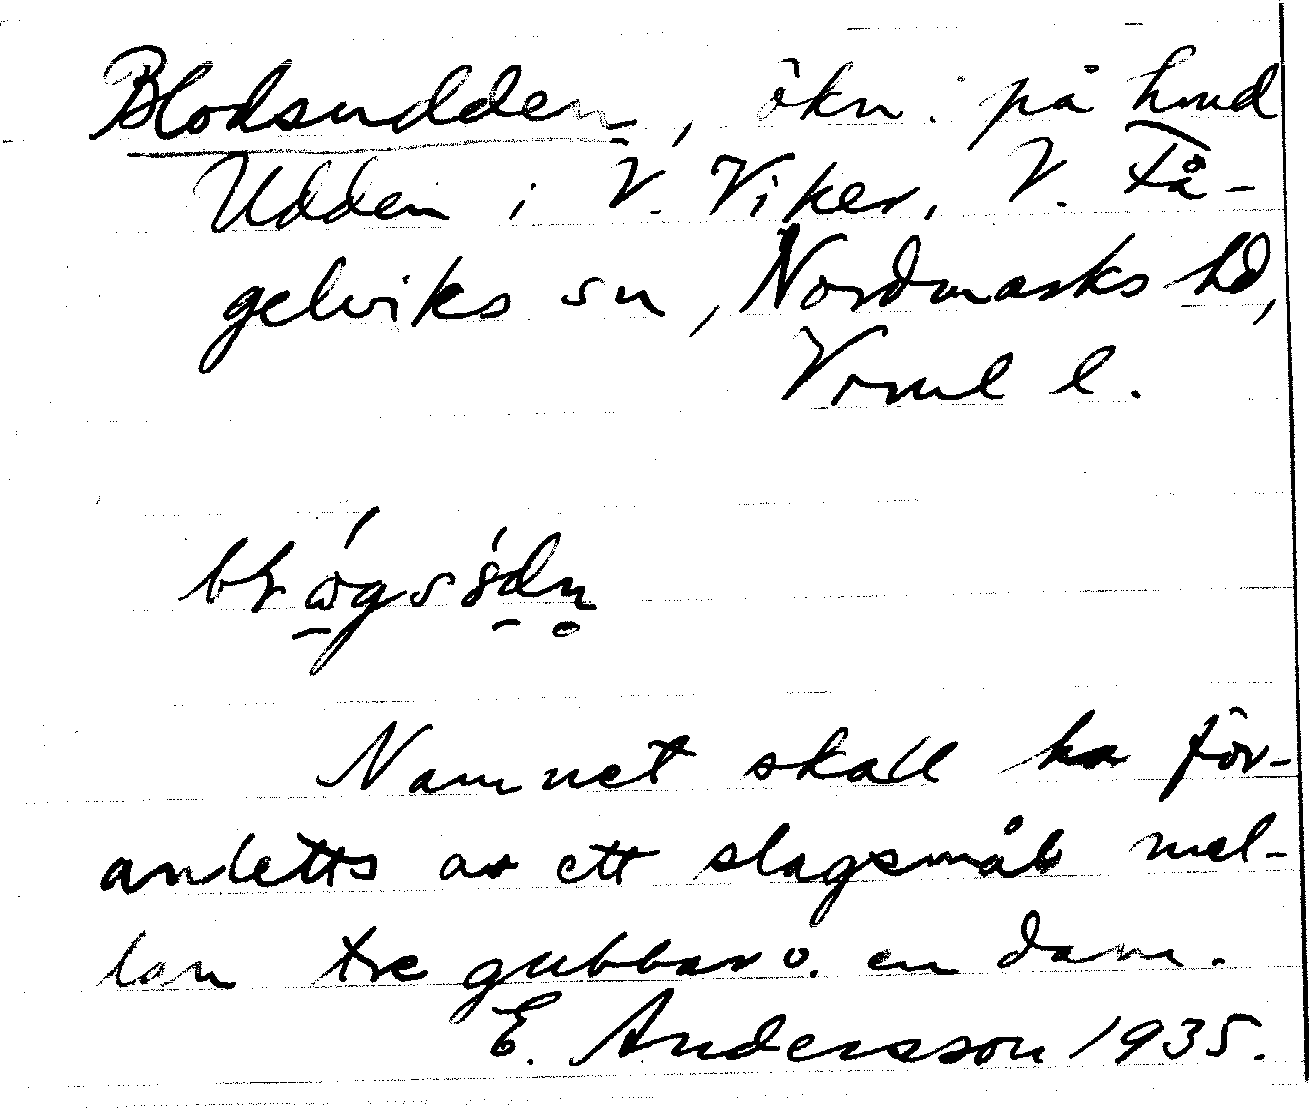 Blodsudden, ökn. på hmd
Udden i V. Viker, V. Få-
gelviks sn, Nordmarks hd,
Vrml l.
Namnet skall ha för-
anletts av ett slagsmål mel-
lan tre gubbar o. en dam.
E. Andersson 1935.